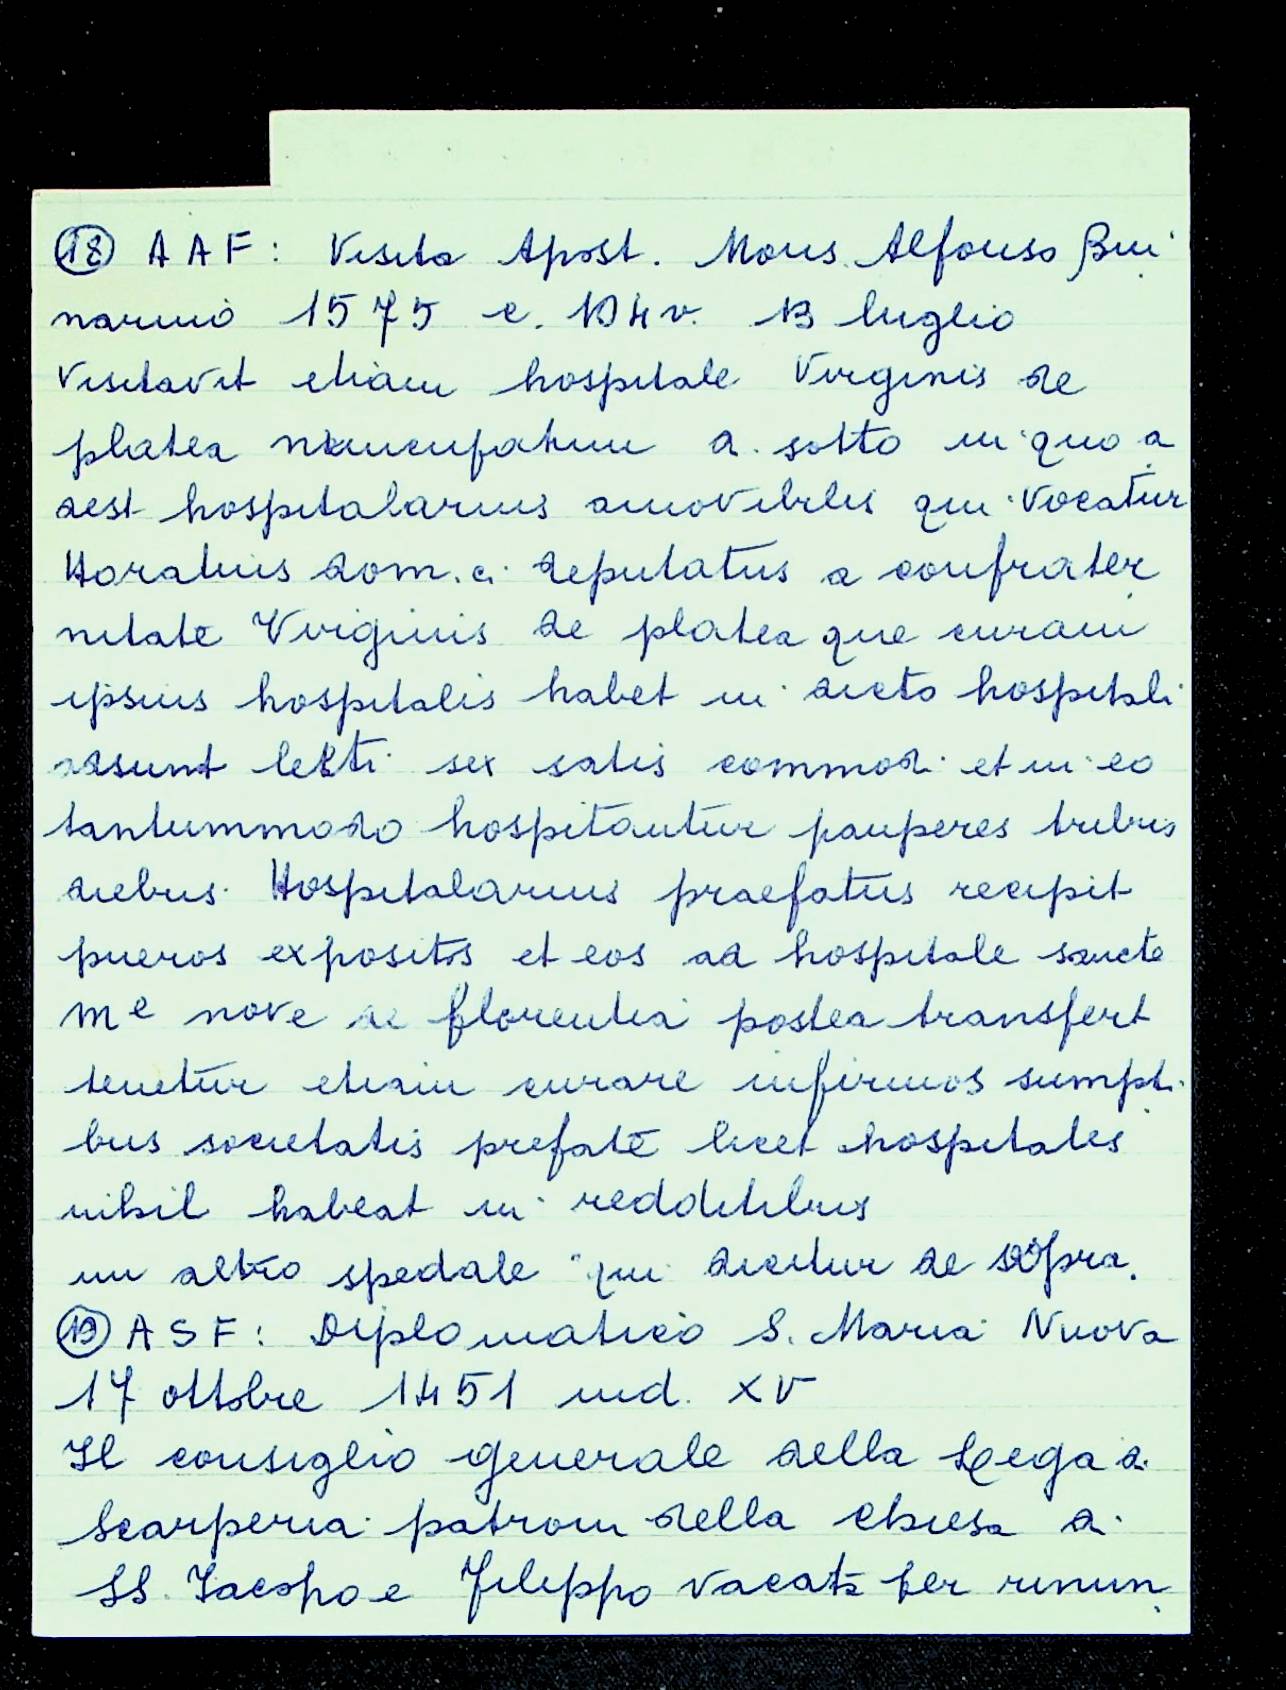 (18) AAF: Visita Apost. Mons. Alfonso Bini
narino 1575 c. 104 v. 13 luglio
Visitavit etiam hospitale Virginis de
platea nuncupatum di sotto in quo a
dest hospitalarius amovibilis qui vocatur
Horatius dom.ci deputatus a confrater
nitate Virginis de platea que curam
ipsius hospitalis habet in dicto hospitali
adsunt letti sex satis commodi et in eo
tantummodo hospitantur pauperes tribus
diebus. Hospitalarius praefatus recipit
pueros expositos et eos ad hospitale sancte
Me nove de florentia postea transfert
tenetur etiam curare infirmos sumpti
bus societatis prefate licet hospitales
nihil habeat in redditibus
un altro spedale qui dicitur de sopra.
(19) ASF: Diplomatico S. Maria Nuova
17 ottobre 1451 ind. XV
Il consiglio generale della Lega di
Scarperia patroni della chiesa di
SS. Jacopo e Filippo vacate per rinun